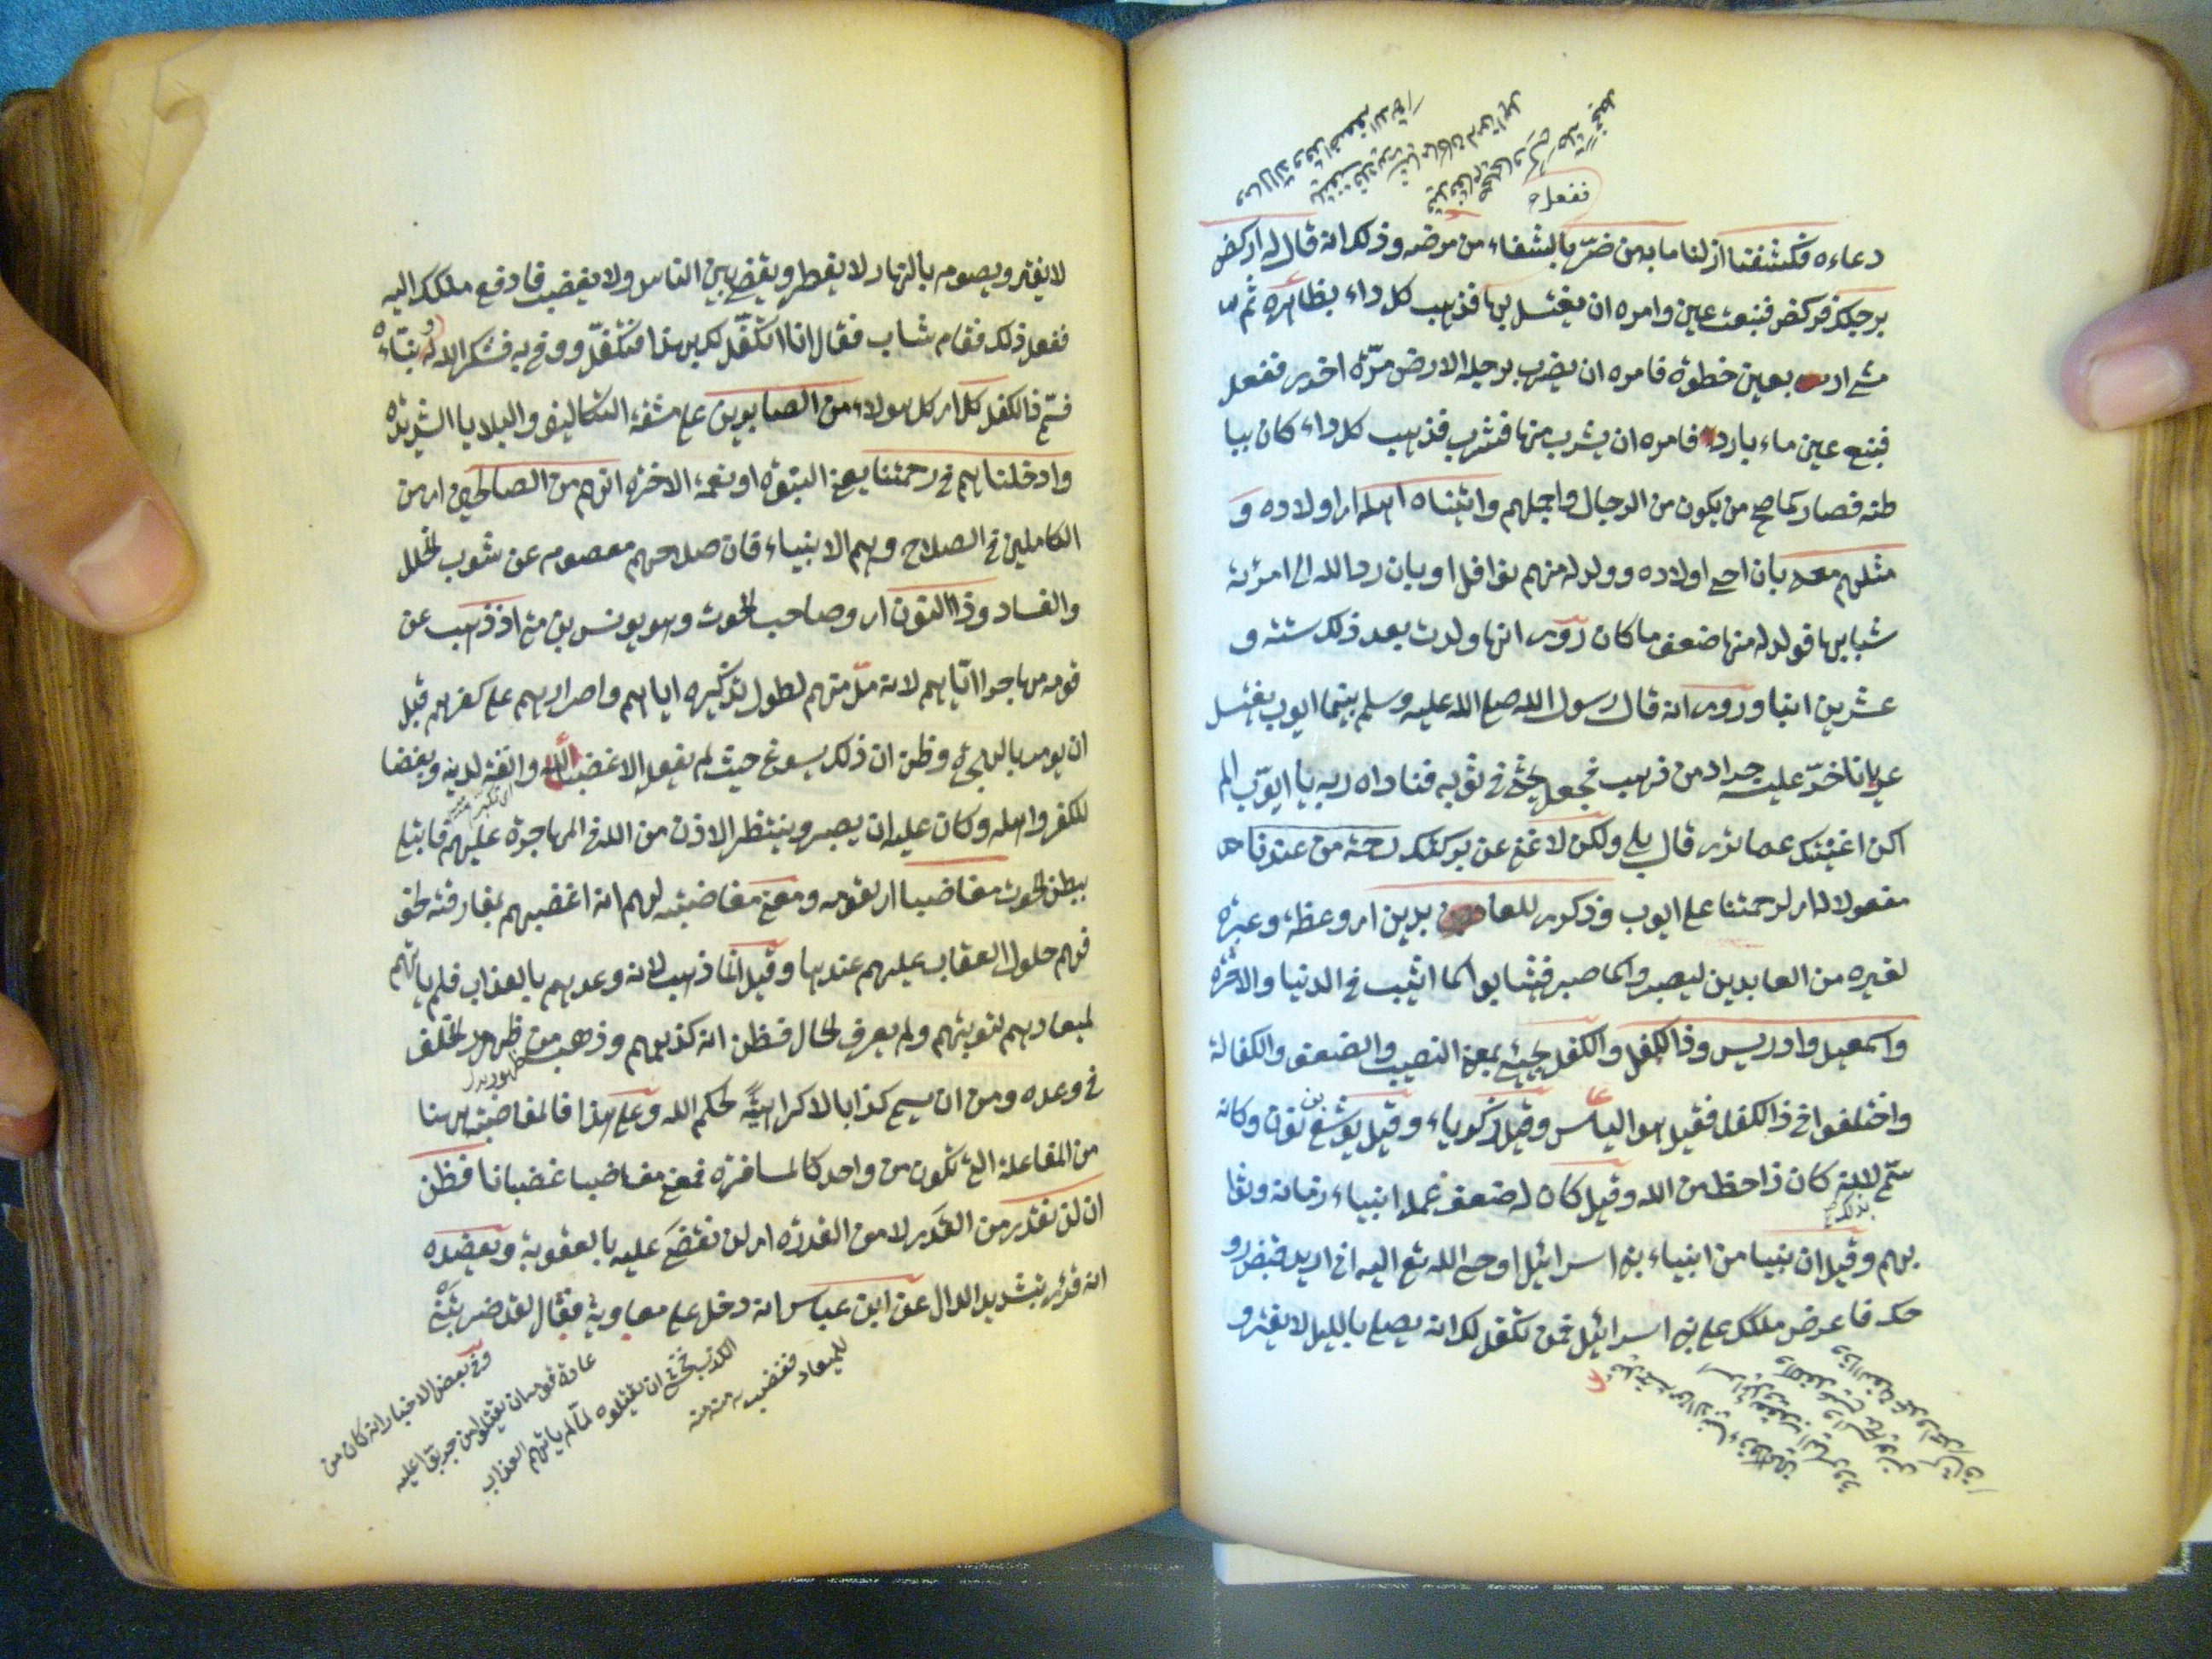 ففعل
دعاءه فكشفنا ازلنا ما به من ضرّ بالشفاء من مرضه وذلك انه قال له اركض
برجلك فركض فنبعت عين وامره ان يغتسل بها فذهب كل داء بظاهره ثم
مشى اربعين خطوة فامره ان يضرب برجله الارض مرّة اخرى ففعل
فنبع عين ماء بارد فامره ان يشرب منها فشرب فذهب كل داء كان ببا
طنه فصار كاصح من يكون من الرجال واجملهم واتيناه اهله اى اولاده و
مثلهم معهم بان احيى اولاده وولد له منهم نوافل او بان رد الله الى امرئته
شبابها فولد له منها ضعف ما كان روى انها ولدت بعد ذلك ستة و
عشرين ابنا وروى انه قال رسول الله صلى الله عليه وسلم بينما ايوب يغتسل
عريانا خرّ عليه جراد من ذهب فجعل يحثى فى ثوبه فناداه ربه يا ايوب الم
اكن اغنيتك عما ترى قال بلى ولكن لا غنى عن بركتك رحمة من عندنا
مفعول له اى لرحمتنا على ايوب وذكرى للعابدين اى وعظة وعبرة
لغيره من العابدين ليصبروا كما صبر فيثابوا كما اثيب فى الدنيا والاخرة
واسمعيل وادريس وذا الكفل والكفل يجيئ بمعنى النصيب والضعف والكفالة
واختلفوا فى ذا الكفل فقيل هو الياس وقيل زكرياء وقيل يوشع بن نون وكانه
سمّى لانه كان ذا حظ من الله وقيل كان له ضعف عمل انبياء زمانه وثوا
بهم وقيل ان نبيا من انبياء بنى اسرائيل اوحى الله تع اليه انى اريد قبض رو
حك فاعرض ملكك على بنى اسرائيل فمن تكفل لك انه يصلى بالليل لا يفتر و
لا يفتر ويصوم بالنهار لا يفطر ويقضى بين الناس ولا يغضب فادفع ملكك اليه
ففعل ذلك فقام شاب فقال انا اتكفّل لك بهذا فتكفّل ووفى به فشكر الله له ونبّاءه
فسمّى ذا الكفل كل اى كل هولاء من الصابرين على مشقة التكاليف والبلايا الشديدة
وادخلناهم فى رحمتنا يعنى النبوّة او نعمة الاخرة انهم من الصالحين اى من
الكاملين فى الصلاح وهم الانبياء فان صلاحهم معصوم عن شوب الخلل
والفساد وذا النون اى وصاحب الحوت وهو يونس بن متى اذ ذهب عن
قومه مهاجرا ايّاهم لانه ملّ منهم لطول تذكيره اياهم واصرارهم على كفرهم قبل
ان يومر بالهجرة وظن ان ذلك يسوغ حيث لم يفعل الا غضبا لله وانفة لدينه وبغضا
للكفر واهله وكان عليه ان يصبر وينتظر الاذن من الله فى المهاجرة عليهم فابتلى
ببطن الحوت مغاضبا اى لقومه ومعنى مغاضبته لهم انه اغضبهم بمفارقته لخو
فهم حلول العقاب عليهم عندها وقيل انما ذهب لانه وعدهم بالعذاب فلم ياتهم
لميعادهم لتوبتهم ولم يعرف الحال فظن انه كذبهم وذهب من ظهور الخلف
فى وعده ومن ان يسمى كذابا لا كراهيّة لحكم الله وعلى هذا فالمغاضبة ههنا
من المفاعلة التى تكون من واحد كالمسافرة فمعنى مغاضبا غضبانا فظن
ان لن نقدر من القَدَر لا من القدرة اى لن نقضى عليه بالعقوبة ويعضده
انه قرئ بتشديد الدال عن ابن عباس انه دخل على معاوية فقال لقد ضربتنى
وفى بعض الاخبار انه كان من
عادة قومه ان يقتلوا من جربوا عليه
الكذب فخشى ان يقتلوه لمّا لم ياتهم العذاب
للميعاد فغضب منه